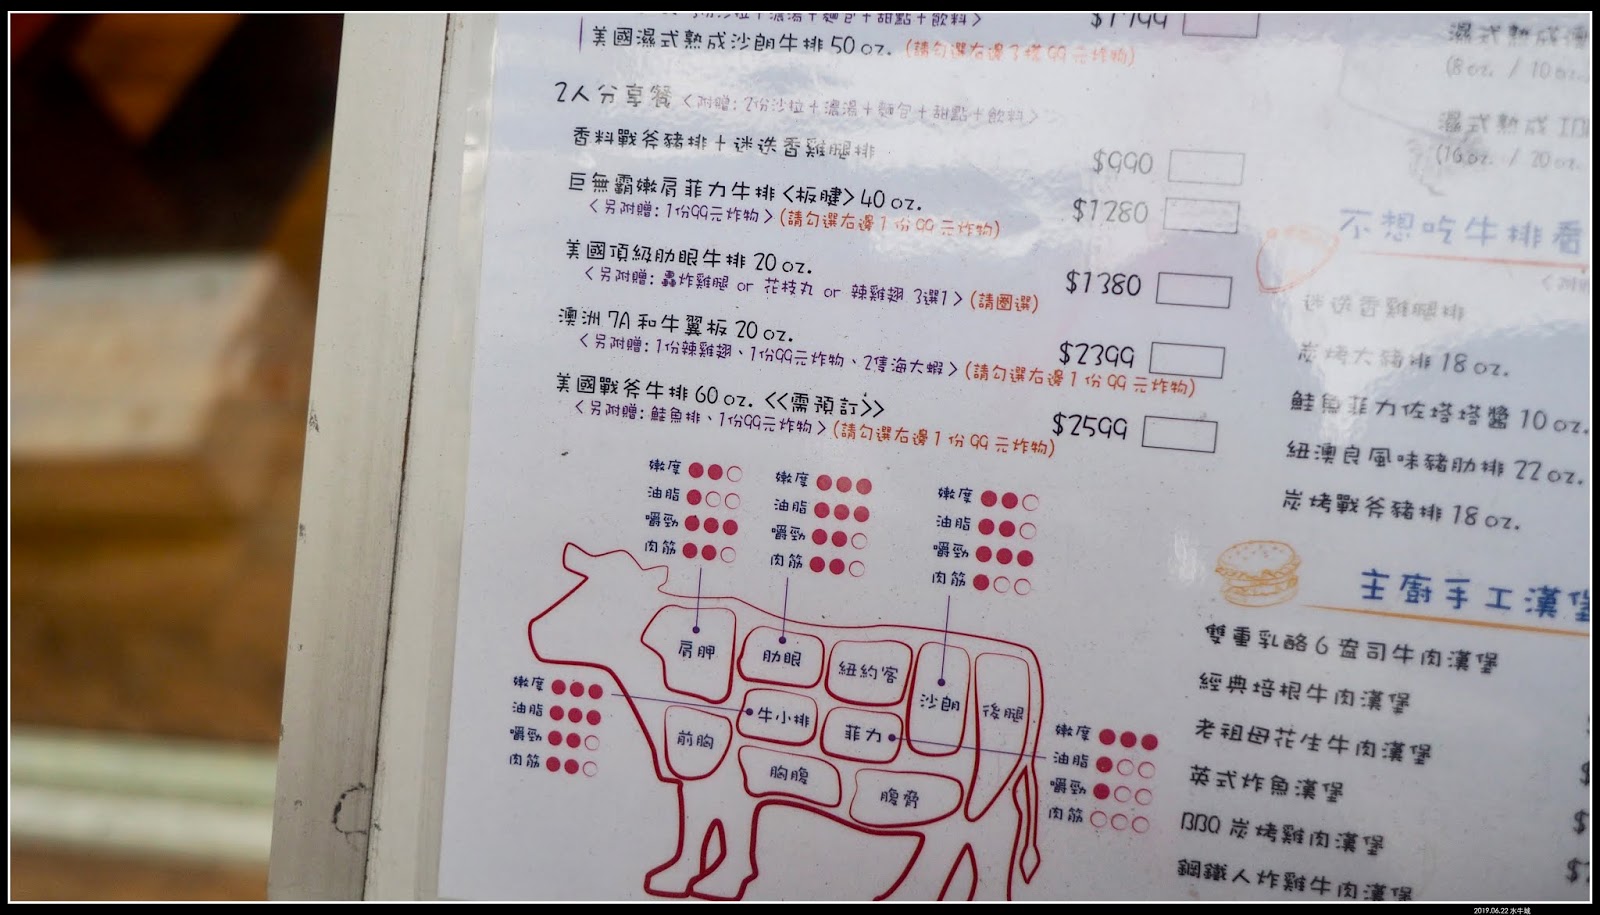 沙拉+濃湯+麵包+甜點+飲料>
美國濕式熟成沙朗牛排 50 oz. (請勾選右邊3樣99元炸物)
2人分享餐 <附贈: 2份沙拉+濃湯+麵包+甜點+飲料>
香料戰斧豬排+迷迭香雞腿排 $990
巨無霸嫩肩菲力牛排<板腱>40 oz. $1280
<另附贈: 1份99元炸物>(請勾選右邊1份99元炸物)
美國頂級肋眼牛排 20 oz. $1380
<另附贈: 轟炸雞腿 or 花枝丸 or 辣雞翅 3選1>(請圈選)
澳洲7A和牛翼板 20 oz. $2399
<另附贈: 1份辣雞翅、1份99元炸物、2隻海大蝦>(請勾選右邊1份99元炸物)
美國戰斧牛排 60 oz. <<需預訂>> $2599
<另附贈: 鮭魚排、1份99元炸物>(請勾選右邊1份99元炸物)
嫩度
油脂
嚼勁
肉筋
嫩度
油脂
嚼勁
肉筋
嫩度
油脂
嚼勁
肉筋
肩胛
肋眼
紐約客
沙朗
後腿
嫩度
油脂
嚼勁
肉筋
前胸
牛小排
菲力
胸腹
腹脅
嫩度
油脂
嚼勁
肉筋
濕式熟成
(8 oz. / 10 oz.
濕式熟成
(16 oz. / 20 oz.
不想吃牛排看
迷迭香雞腿排
炭烤大豬排 18 oz.
鮭魚菲力佐塔塔醬 10 oz.
紐澳良風味豬肋排 22 oz.
炭烤戰斧豬排 18 oz.
主廚手工漢堡
雙重乳酪6盎司牛肉漢堡
經典培根牛肉漢堡
老祖母花生牛肉漢堡
英式炸魚漢堡
BBQ 炭烤雞肉漢堡
鋼鐵人炸雞牛肉漢堡
2019.06.22 水牛城